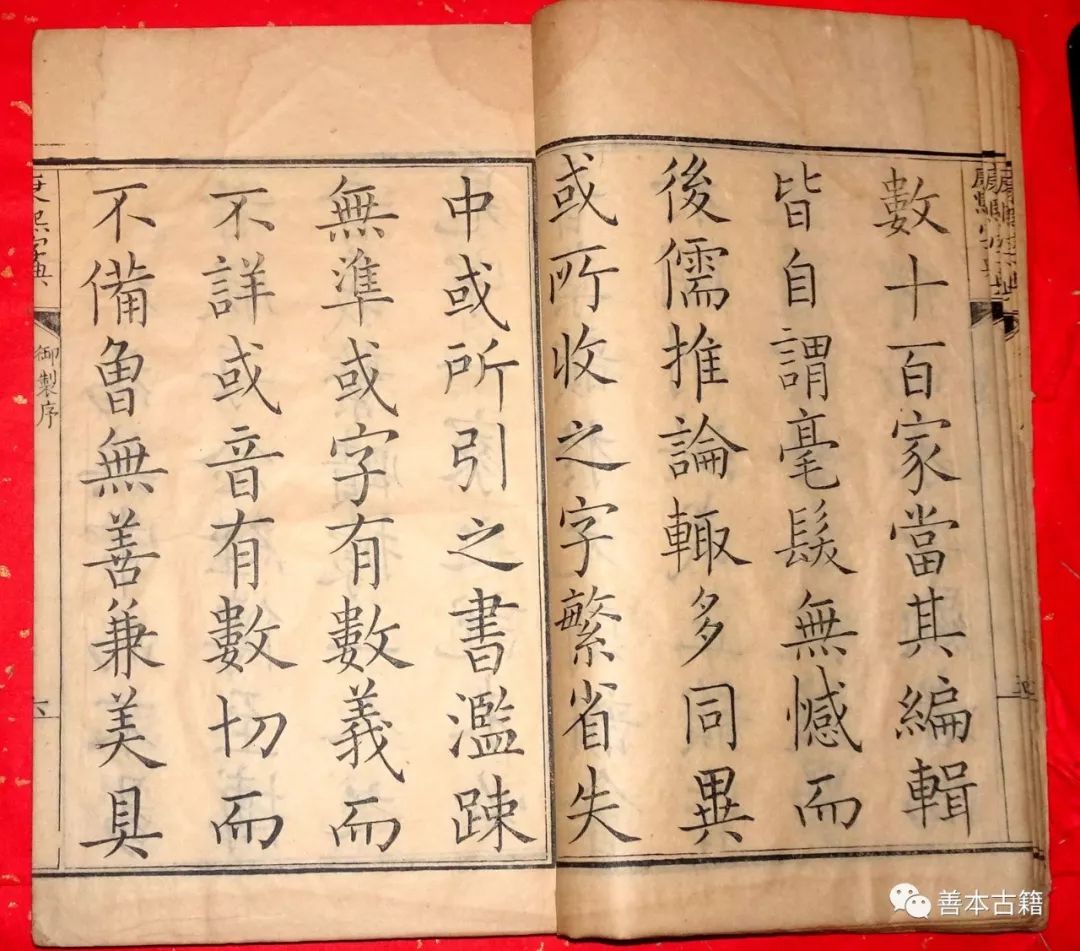 數十百家當其編輯
皆自謂毫髮無憾而
後儒推論輙多同異
或所收之字繁省失
中或所引之書濫踈
無準或字有數義而
不詳或音有數切而
不備曾無善兼美具
康熙字典
御製序
六
善本古籍